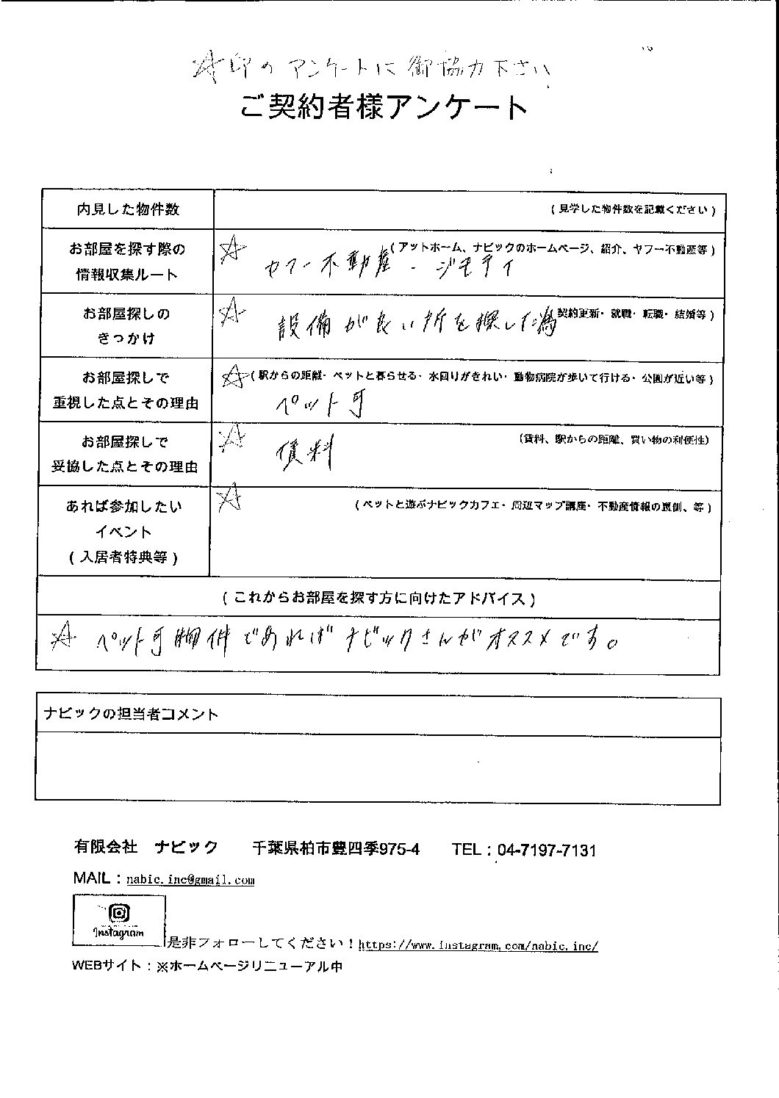 ☆印のアンケートに御協力下さい
ご契約者様アンケート
内見した物件数
(見学した物件数を記載ください)
お部屋を探す際の
情報収集ルート
☆
(アットホーム、ナビックのホームページ、紹介、ヤフー不動産等)
ヤフー不動産・ジモティ
お部屋探しの
きっかけ
☆
設備が良い所を探した為
契約更新・就職・転職・結婚等)
お部屋探しで
重視した点とその理由
☆(駅からの距離・ペットと暮らせる・水回りがきれい・動物病院が歩いて行ける・公園が近い等)
ペット可
お部屋探しで
妥協した点とその理由
☆
(賃料、駅からの距離、買い物の利便性)
賃料
あれば参加したい
イベント
(入居者特典等)
☆
(ペットと遊ぶナビックカフェ・周辺マップ講座・不動産情報の裏側、等)
(これからお部屋を探す方に向けたアドバイス)
☆ ペット可物件であればナビックさんがオススメです。
ナビックの担当者コメント
有限会社 ナビック 千葉県柏市豊四季975-4 TEL:04-7197-7131
MAIL:nabic.inc@gmail.com
Instagram
是非フォローしてください!https://www.instagram.com/nabic.inc/
WEBサイト:※ホームページリニューアル中